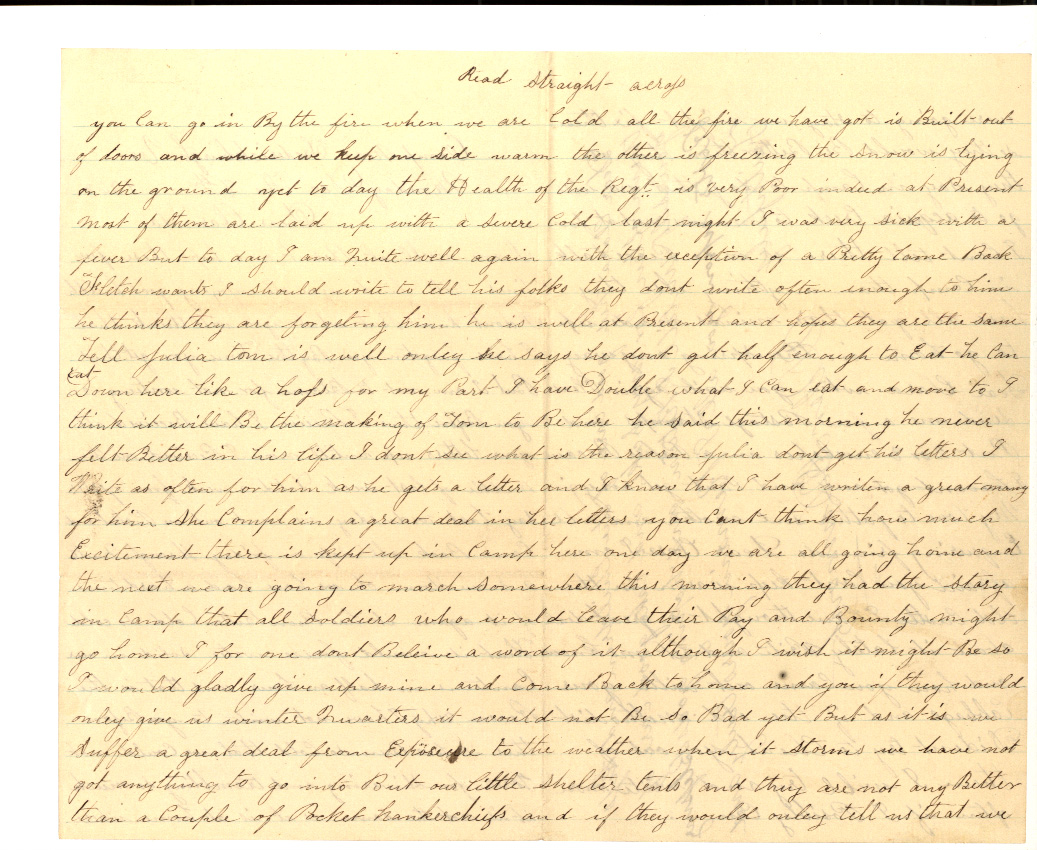 Read straight across
you Can go in By the fire when we are Cold all the fire we have got is Built out
of doors and while we keep one side warm the other is freezing the snow is lying
on the ground yet to day the Health of the Regt. is very Poor indeed at Present
most of them are laid up with a severe Cold last night I was very sick with a
fever But to day I am Quite well again with the exception of a Pretty lame Back
Fletch wants I should write to tell his folks they dont write often enough to him
he thinks they are forgeting him he is well at Present and hopes they are the same
Tell Julia tom is well onley he says he dont get half enough to Eat he Can
eat
Down here like a hoss for my Part I have Double what I Can eat and move to I
think it will Be the making of Tom to Be here he said this morning he never
felt Better in his life I dont see what is the reason Julia dont get his letters I
Write as often for him as he gets a letter and I know that I have writen a great many
for him She Complains a great deal in her letters you Cant think how much
Excitement there is kept up in Camp here one day we are all going home and
the next we are going to march somewhere this morning they had the story
in Camp that all soldiers who would leave their Pay and Bounty might
go home I for one dont Beleive a word of it although I wish it might Be so
I would gladly give up mine and Come Back to home and you if they would
onley give us winter Quarters it would not Be so Bad yet But as it is we
Suffer a great deal from Exposure to the weather when it storms we have not
got anything to go into But our little shelter tents and they are not any Better
than a Couple of Pocket hankercheifs and if they would onley tell us that we